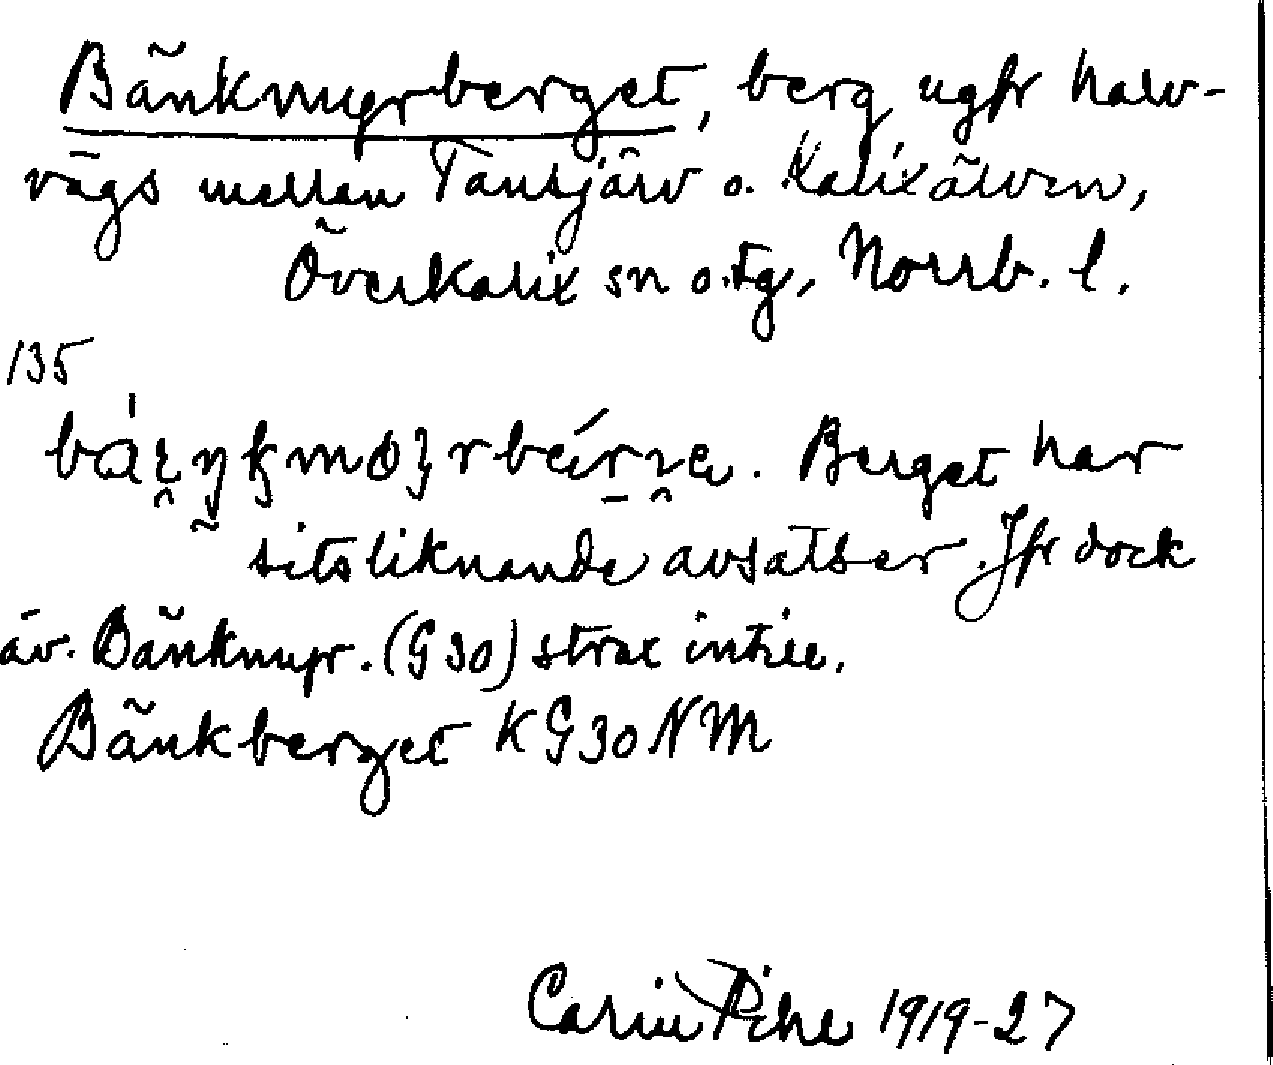 Bänkmyrberget, berg ugfr halv-
vägs mellan Tansjärv o. Kalixälven,
Överkalix sn o. tg, Norrb. l.
135
Berget har
sitsliknande avsatser. Jfr dock
äv. Bänkmyr. (G30) strax intill.
Bänkberget KG30NM
Carin Pihl 1919-27